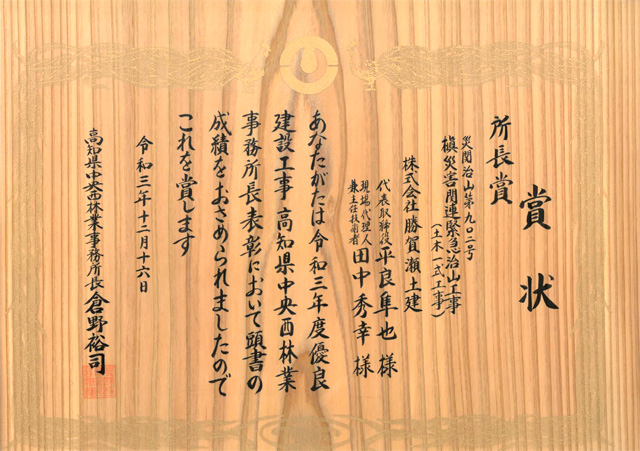 賞状
所長賞
災関治山第九〇二号
槇災害関連緊急治山工事
(土木一式工事)
株式会社勝賀瀬土建
代表取締役 平良隼也 様
現場代理人
兼主任技術者 田中秀幸 様
あなたがたは令和三年度優良
建設工事高知県中央西林業
事務所長表彰において頭書の
成績をおさめられましたので
これを賞します
令和三年十二月十六日
高知県中央西林業事務所長 倉野裕司